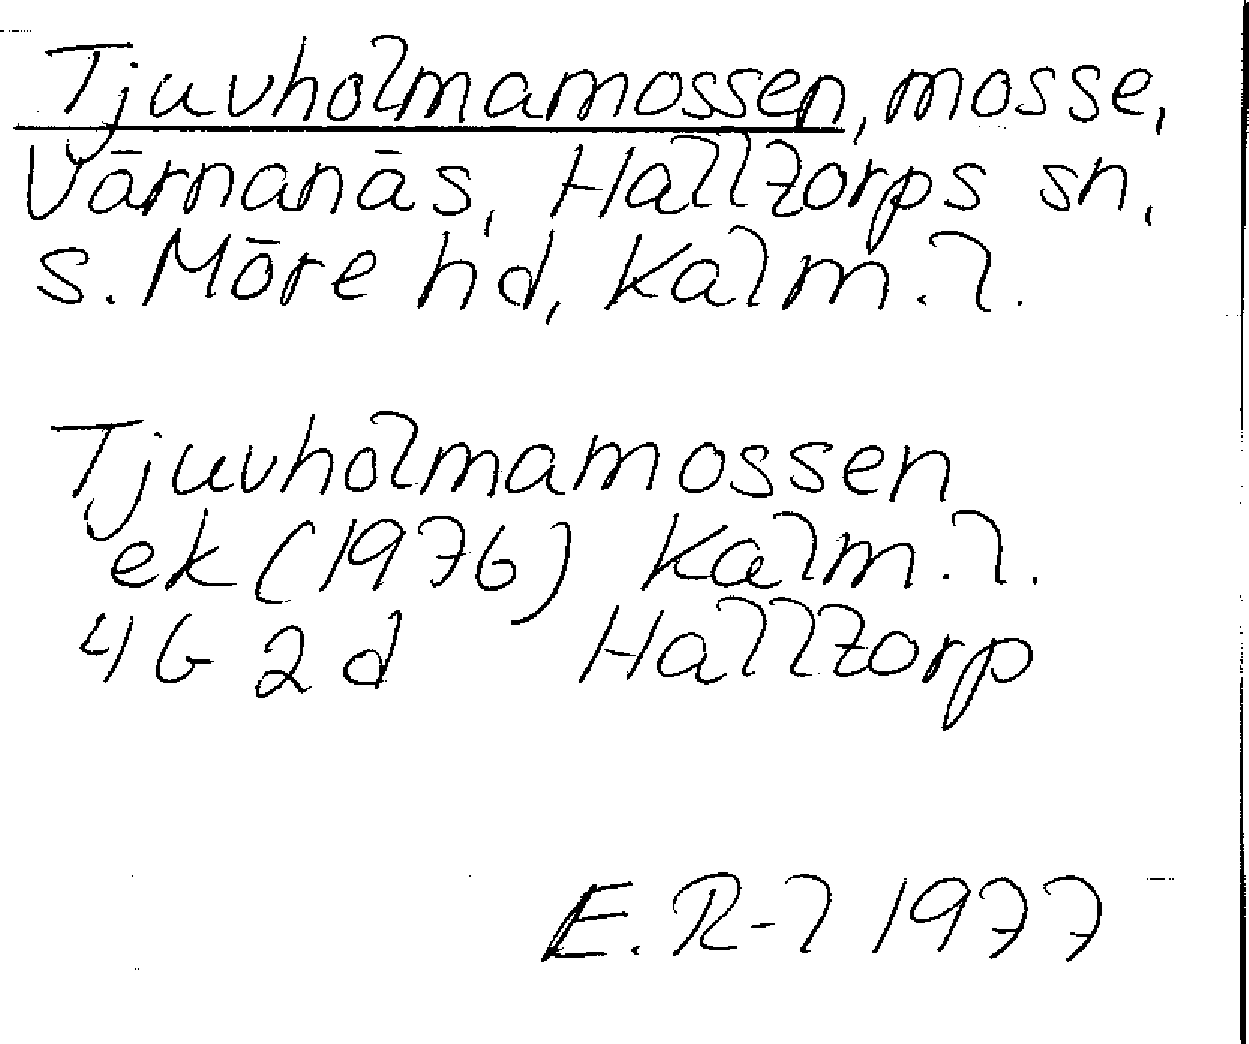 Tjuvholmamossen, mosse,
Värnanäs, Halltorps sn,
s. Möre hd, Kalm. l.
Tjuvholmamossen
ek (1976) Kalm. l.
4G 2d Halltorp
E. R-l 1977